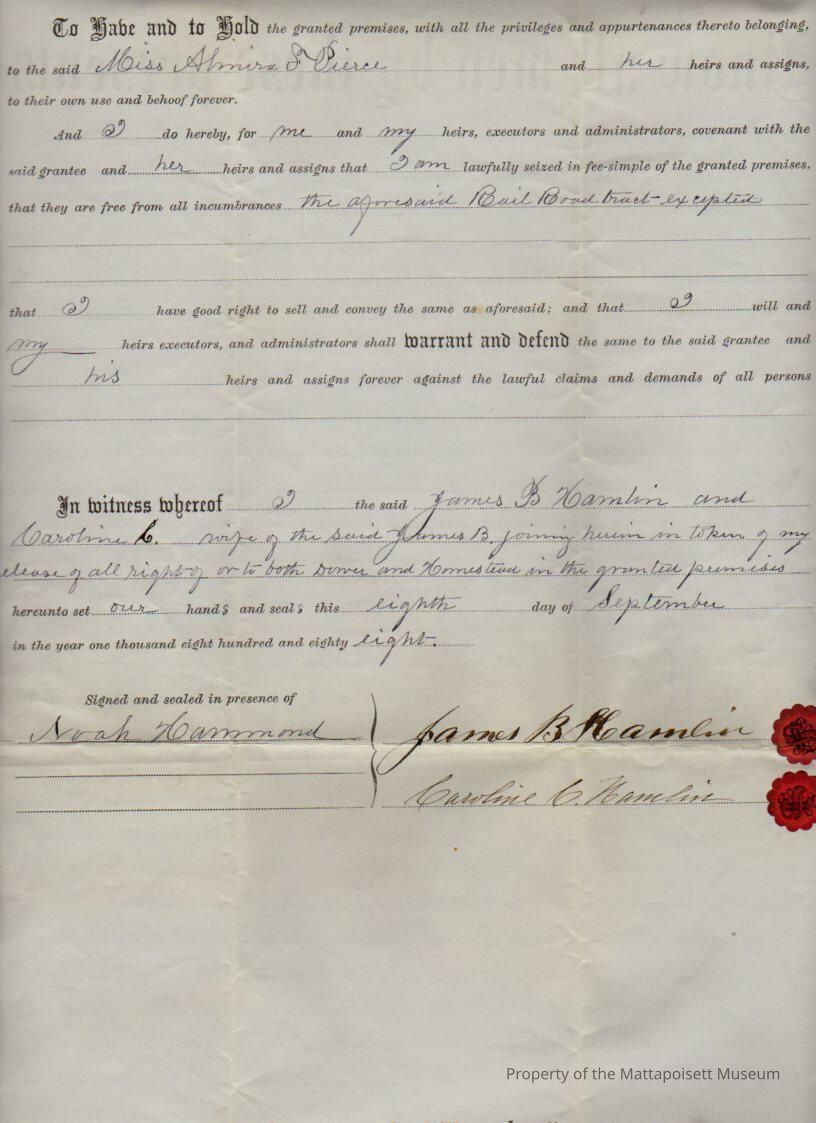 To Have and to Hold the granted premises, with all the privileges and appurtenances thereto belonging,
to the said Miss Almira F Pierce and her heirs and assigns,
to their own use and behoof forever.
And I do hereby, for me and my heirs, executors and administrators, covenant with the
said grantee and her heirs and assigns that I am lawfully seized in fee-simple of the granted premises,
that they are free from all incumbrances the aforesaid Rail Road tract excepted
that I have good right to sell and convey the same as aforesaid; and that I will and
my heirs executors, and administrators shall warrant and defend the same to the said grantee and
his heirs and assigns forever against the lawful claims and demands of all persons
In witness whereof I the said James B Hamlin and
Caroline C. wife of the said James B. joining herein in token of my
elease of all right of or to both Dower and Homestead in the granted premises
hereunto set our hands and seals this eighth day of September
in the year one thousand eight hundred and eighty eight.
Signed and sealed in presence of
Noah Hammond James B Hamlin
Caroline C. Hamlin
Property of the Mattapoisett Museum